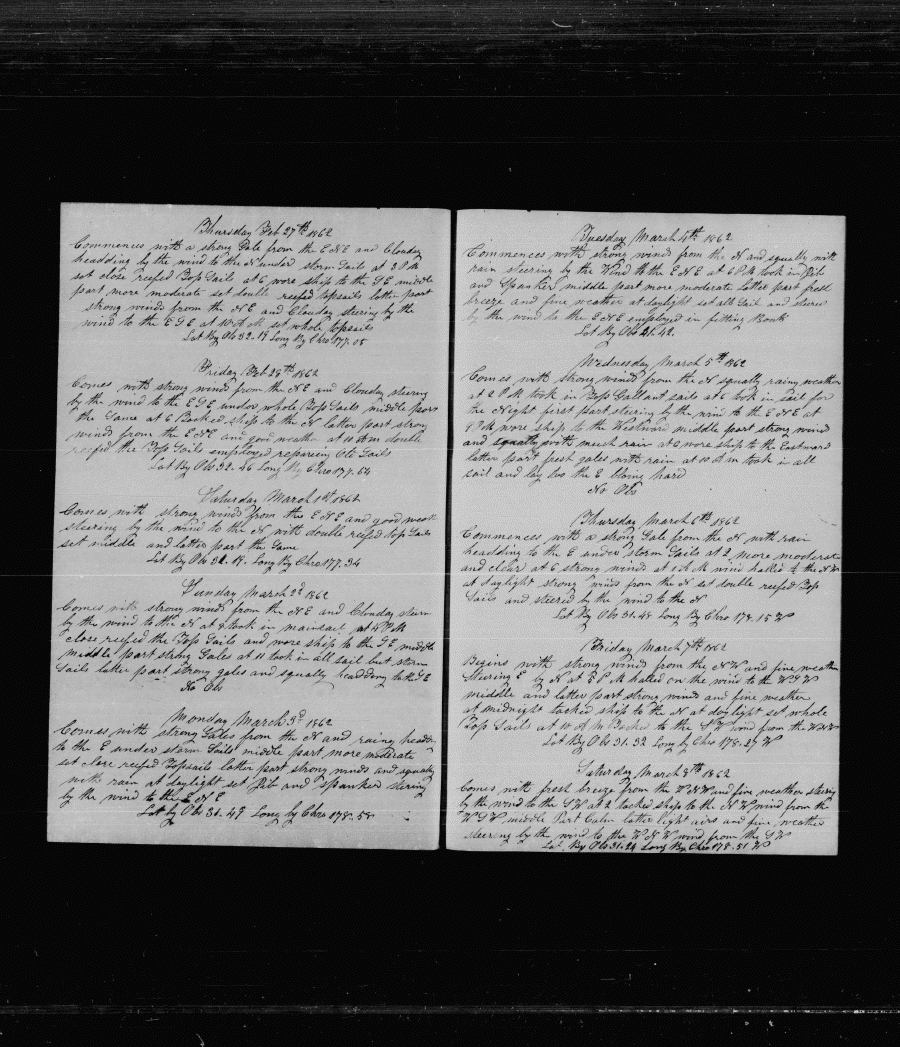 Thursday Feb 27th 1862
Commences with a strong Gale from the E N E and Clouday
headding by the wind to the N under storm Sails at 3 P M
set close reefed Top Sails at 6 wore ship to the S E middle
part more moderate set double reefed topsails latter part
strong winds from the N E and Clouday steering by the
wind to the E S E at 10 A M set whole topsails
Lat By Obs 32.18 Long By Chro 177.05
Friday Feb 28th 1862
Comes with strong winds from the N E and Clouday steering
by the wind to the E S E under whole Top Sails middle part
the Same at 6 Backed ship to the N latter part strong
winds from the E N E and good weather at 10 A m double
reefed the Top Sails employed repareing Old Sails
Lat By Obs 32.26 Long By Chro 177.54
Saturday March 1st 1862
Comes with strong winds from the E N E and good weath
steering by the wind to the N with double reefed Top Sails
set middle and latter part the Same
Lat By Obs 32.17. Long By Chro 177.34
Sunday March 2d 1862
Comes with strong winds from the N E and Clouday steern
by the wind to the N at 2 took in mainsail at 4 P M
close reefed the Top Sails and wore ship to the S E middle
middle part strong Gales at 11 took in all sail but storm
Sails latter part strong gales and squally headding to the S E
No Obs
Monday March 3d 1862
Comes with strong Gales from the N and raing headdn
to the E under storm Sails middle part more moderate
set close reefed Topsails latter part strong winds and squaly
with rain at daylight set Jib and spanker steering
by the wind to the E N E
Lat by Obs 31.49 Long by Chro 178.58
Tuesday March 4th 1862
Commences with strong winds from the N and squally with
rain steering by the Wind to the E N E at 6 P M took in Jib
and Spanker middle part more moderate latter part fresh
breeze and fine weather at daylight set all Sail and steered
by the wind to the E N E employed in fitting Boats
Lat By Obs 31.42.
Wednesday March 5th 1862
Comes with strong winds from the N squally rainy weather
at 2 P M took in Top Gallant sails at 6 took in sail for
the Night first part steering by the wind to the E N E at
9 P M wore ship to the Westward middle part strong wind
and squally with much rain at 6 wore ship to the Eastward
latter part fresh gales with rain at 10 A m took in all
sail and lay too the E bloing hard
No Obs
Thursday March 6th 1862
Commences with a strong Gale from the N with rain
headding to the E under storm Sails at 2 more moderate
and clear at 6 strong winds at 1 A M wind halled to the N W
at daylight strong winds from the N set double reefed Top
Sails and steered by the wind to the N
Lat By Obs 31.48 Long By Chro 178.15 W
Friday March 7th 1862
Begins with strong winds from the N W and fine weather
Steering E by N at 3 P M halled on the wind to the W S W
middle and latter part strong winds and fine weather
at midnight tacked ship to the N at daylight set whole
Top Sails at 10 A M Tacked to the S W wind from the W N W
Lat By Obs 31.32 Long by Chro 178.27 W
Saturday March 8th 1862
Comes with fresh breeze from the W N W and fine weather steering
by the wind to the S W at 2 tacked ship to the N W wind from the
W S W middle Part Calm latter light airs and fine weather
steering by the wind to the W N W wind from the S W
Lat By Obs 31.24 Long By Chro 178.51 W